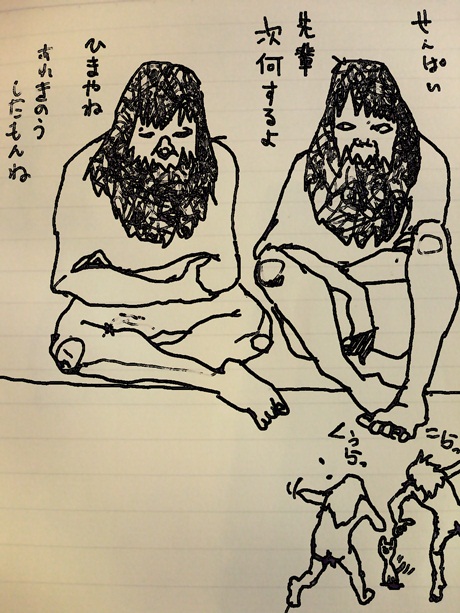 せんぱい
先輩
次何するよ
ひまやね
あれきのう
したもんね
くぅらっ
こらっ